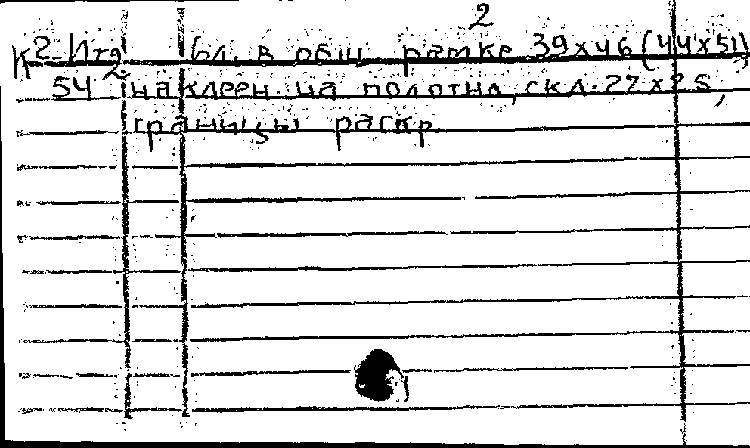 2
К2 Ит2 6л. в общ рамке 39х46 (44х51)
54 наклеен. на полотно, скл. 27х25,
границы раскр.